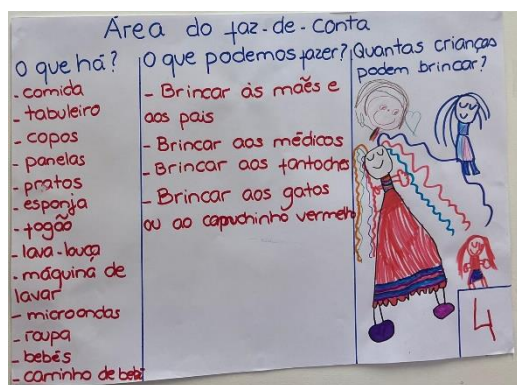 Área do faz-de-conta
O que há?
- comida
- tabuleiro
- copos
- panelas
- pratos
- esponja
- fogão
- lava-louça
- máquina de
lavar
- microondas
- roupa
- bebés
- carrinho de bebé
O que podemos fazer?
- Brincar às mães e
aos pais
- Brincar aos médicos
- Brincar aos fantoches
- Brincar aos gatos
ou ao capuchinho vermelho
Quantas crianças
podem brincar?
4